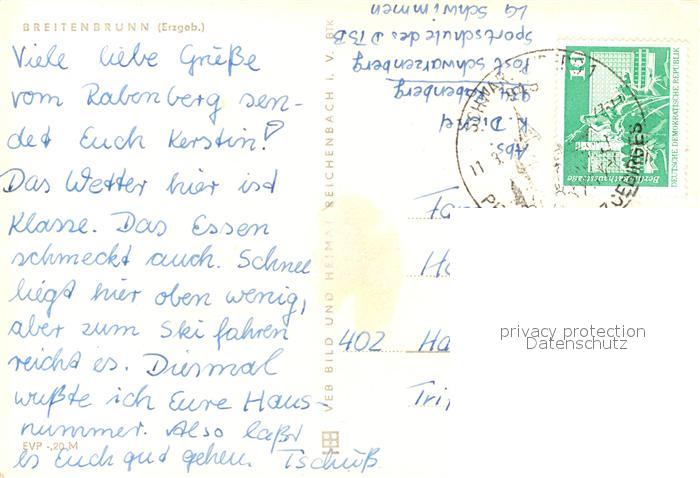 BREITENBRUNN (Erzgeb.)
Viele liebe Grüße
vom Rabenberg sen-
det Euch Kerstin!
Das Wetter hier ist
Klasse. Das Essen
schmeckt auch. Schnee
liegt hier oben wenig,
aber zum Ski fahren
reicht es. Diesmal
wußte ich Eure Haus-
nummer. Also laßt
es Euch gut gehen. Tschüß
EVP -,20 M
VEB BILD UND HEIMAT REICHENBACH I. V. BTK
Abs.
K.
Rabenberg
Post Schwarzenberg
Sportschule des DTSB
LG Schwimmen
10
DEUTSCHE DEMOKRATISCHE REPUBLIK
402 Ha
Tri
privacy protection
Datenschutz